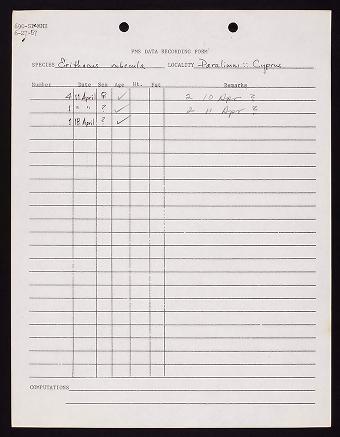 6-27-57
PMS DATA RECORDING FORM
SPECIES Erithacus rubecula LOCALITY Paralimni :: Cyprus
Number Date Sex Age Wt. Fat Remarks
4 11 April ♀ ✓ 2 10 Apr ?
1 " " ? ✓ 2 11 Apr ?
1 18 April ? ✓
COMPUTATIONS